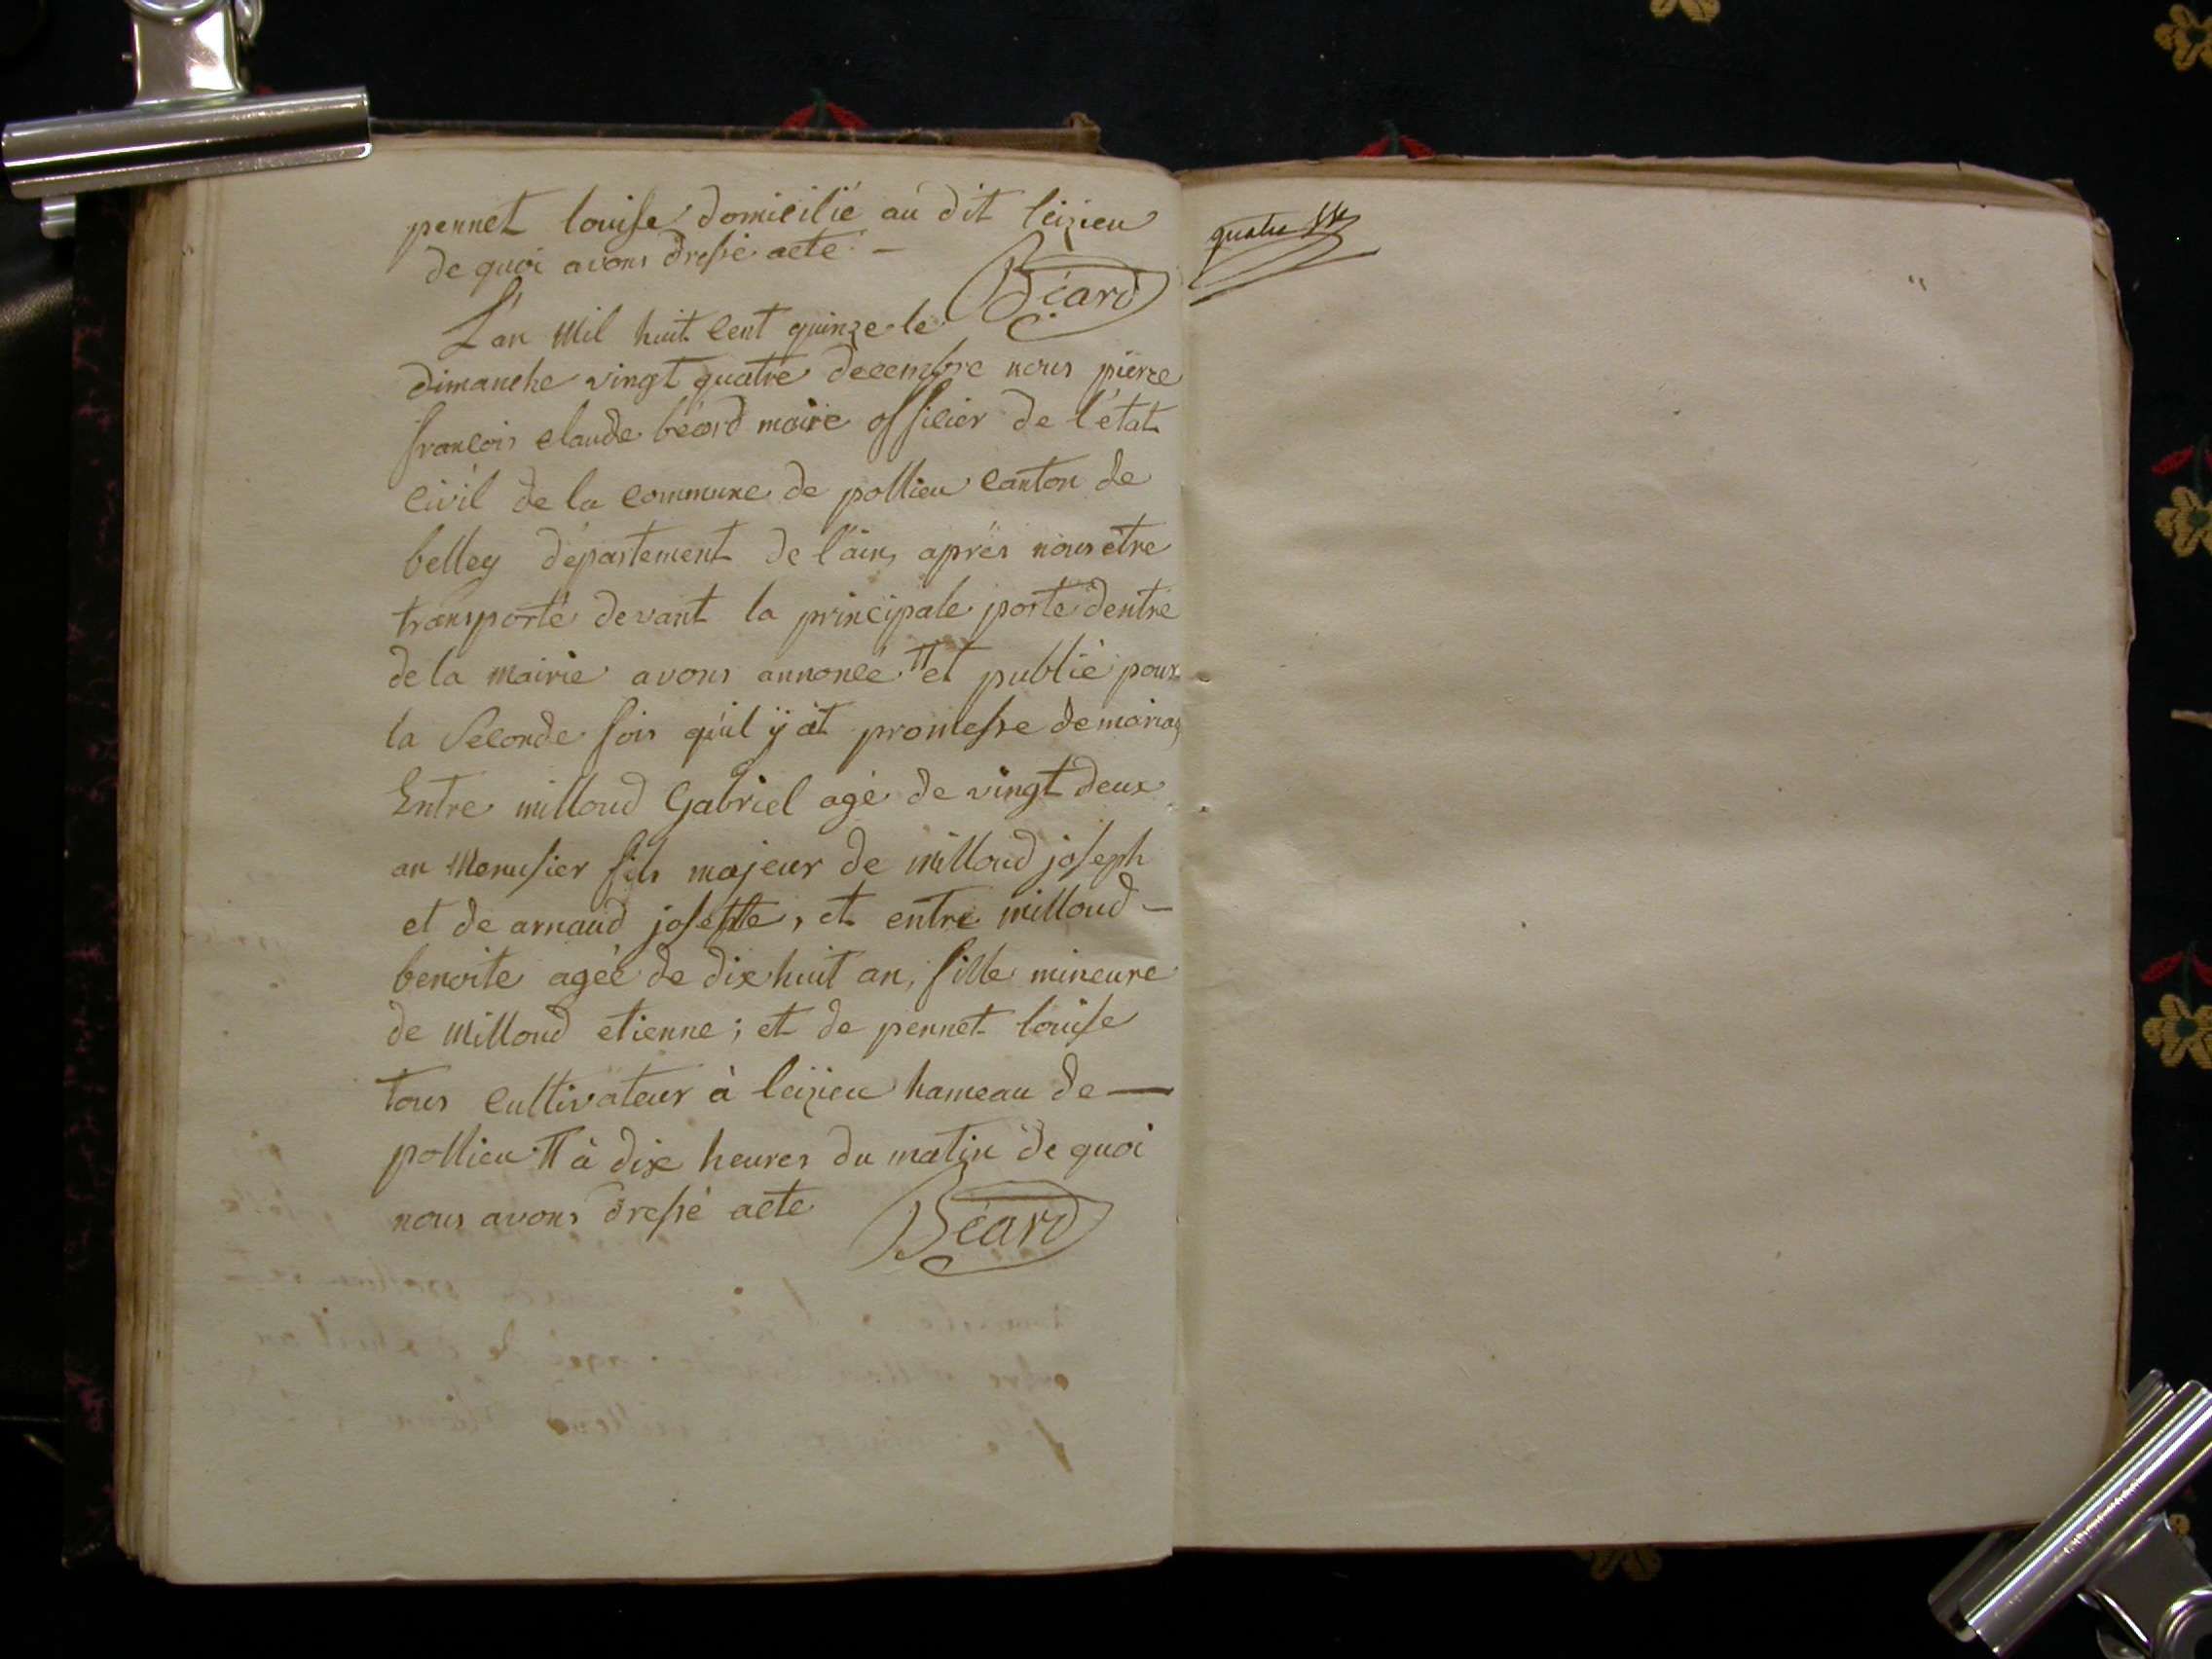 pennet louise domicilié au dit leizieu
de quoi avons dressé acte –
Béard
L'an mil huit cent quinze le
dimanche vingt quatre decembre nous pierre
françois claude béard maire officier de l'état
civil de la commune de pollieu canton de
belley département de l'ain, aprés nous etre
transporté devant la principale porte dentré
de la mairie avons annoncé et publié pour
la seconde fois qu'il ÿ at promesse de mariag
Entre milloud Gabriel agé de vingt deux
an Menusier fils majeur de milloud joseph
et de arnaud josephte, et entre milloud –
benoite agée de dix huit an, fille mineure
de Milloud etienne ; et de pennet louise
tous cultivateur à leizieu hameau de —
pollieu à dix heures du matin de quoi
nous avons dressé acte
Béard
quatre